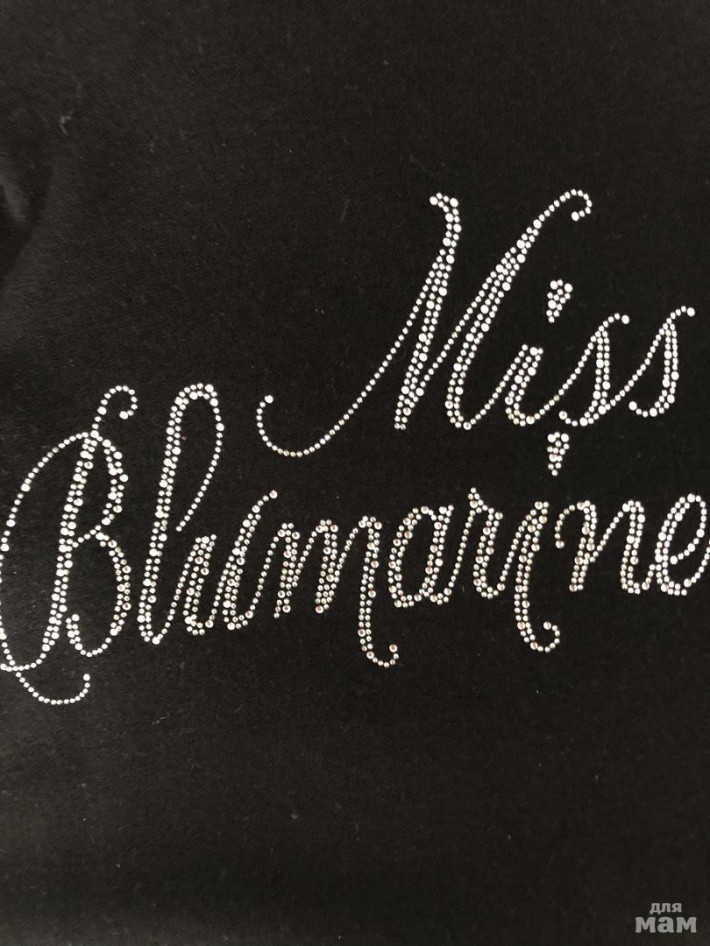 Miss
Blumarine
для
мам